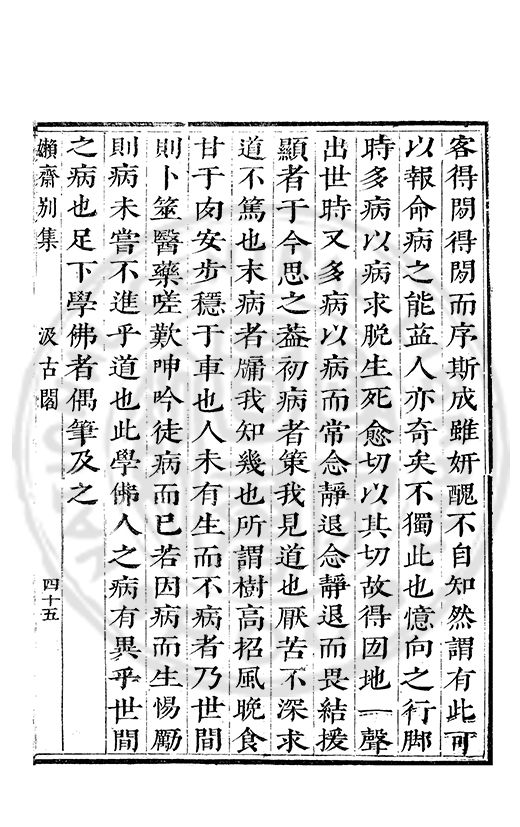 客得閒得閒而序斯成雖妍醜不自知然謂有此可
以報命病之能益人亦奇矣不獨此也憶向之行脚
時多病以病求脫生死愈切以其切故得囡地一聲
出世時又多病以病而常念靜退念靜退而畏結援
顯者于今思之葢初病者策我見道也厭苦不深求
道不篤也末病者牖我知幾也所謂樹高招風晚食
甘于肉安步穩于車也人未有生而不病者乃世間
則卜筮醫藥嗟歎呻吟徒病而已若因病而生惕勵
則病未嘗不進乎道也此學佛人之病有異乎世間
之病也足下學佛者偶筆及之
嬾齋別集 汲古閣 四十五